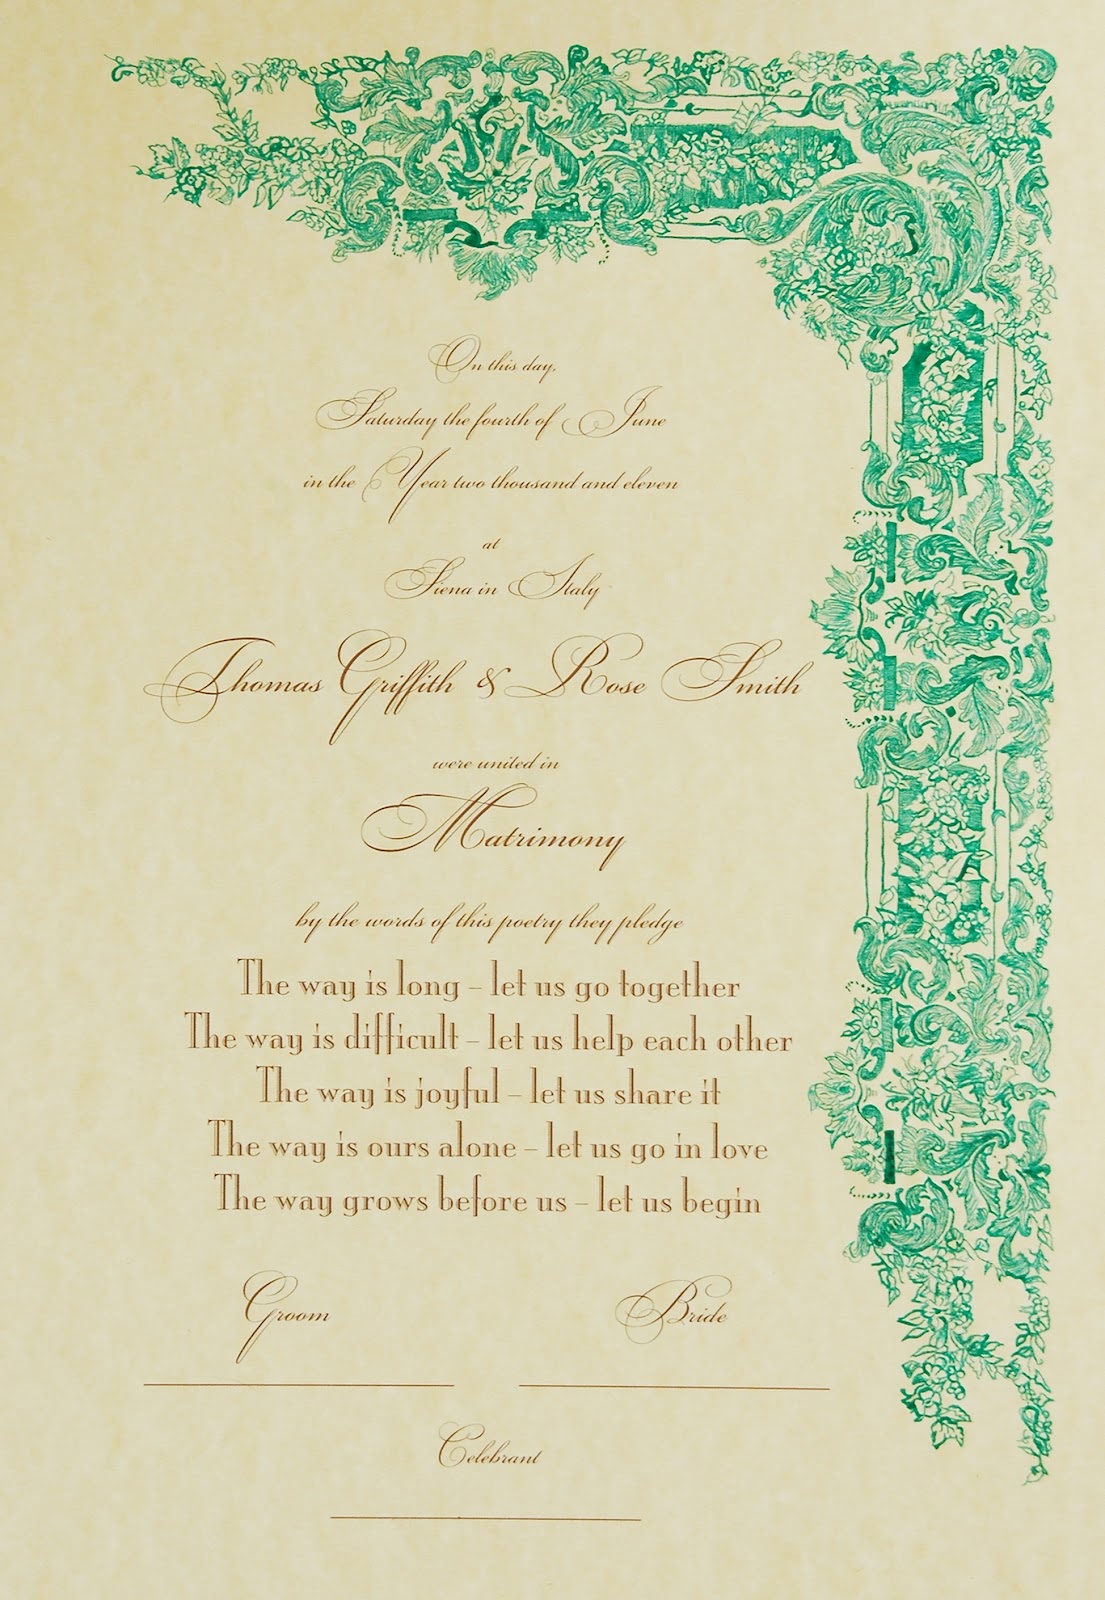 On this day,
Saturday the fourth of June
in the Year two thousand and eleven
at
Siena in Italy
Thomas Griffith & Rose Smith
were united in
Matrimony
by the words of this poetry they pledge
The way is long – let us go together
The way is difficult – let us help each other
The way is joyful – let us share it
The way is ours alone – let us go in love
The way grows before us – let us begin
Groom Bride
Celebrant